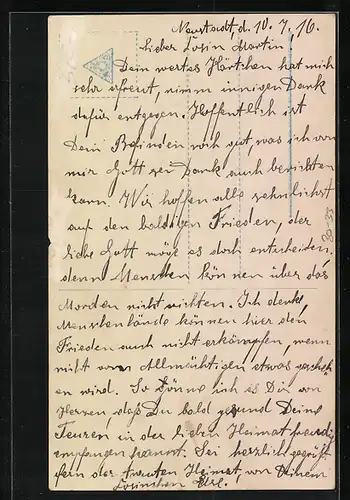 Neustadt, d. 10. 7. 16.
Lieber Cosin Martin
Dein wertes Kärtchen hat mich
sehr erfreut, nimm innigen Dank
dafür entgegen. Hoffentlich ist
Dein Befinden noch gut, was ich von
mir Gott sei Dank auch berichten
kann. Wir hoffen alle sehnlichst
auf den baldigen Frieden, der
liebe Gott möge es doch entscheiden,
denn Menschen können über das
Morden nicht richten. Ich denke,
Menschenhände können hier den
Frieden auch nicht erkämpfen, wenn
nicht vom Allmächtigen etwas gescheh
en wird. So gönne ich es Dir von
Herzen, daß Du bald gesund Deine
Teuren in der lieben Heimat freudig
empfangen kannst. Sei herzlich gegrüßt
fern der trauten Heimat, von Deinem
Cosinchen